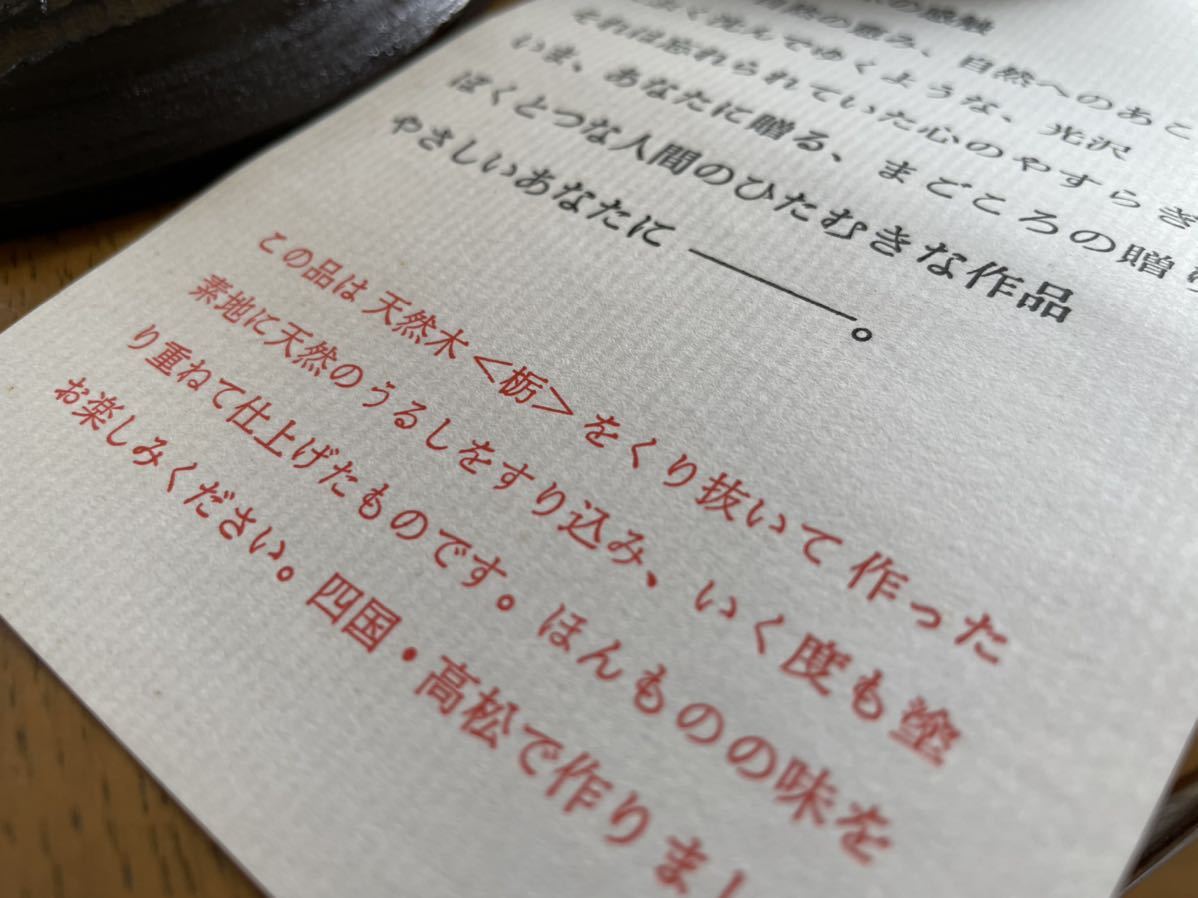 の感触
自然の恵み、自然へのあこ
深く沈んでゆくような、光沢
それは忘れられていた心のやすらぎ
いま、あなたに贈る、まごころの贈り
ぼくとつな人間のひたむきな作品
やさしいあなたに ―――。
この品は天然木<栃>をくり抜いて作った
素地に天然のうるしをすり込み、いく度も塗
り重ねて仕上げたものです。ほんものの味を
お楽しみください。四国・高松で作りまし